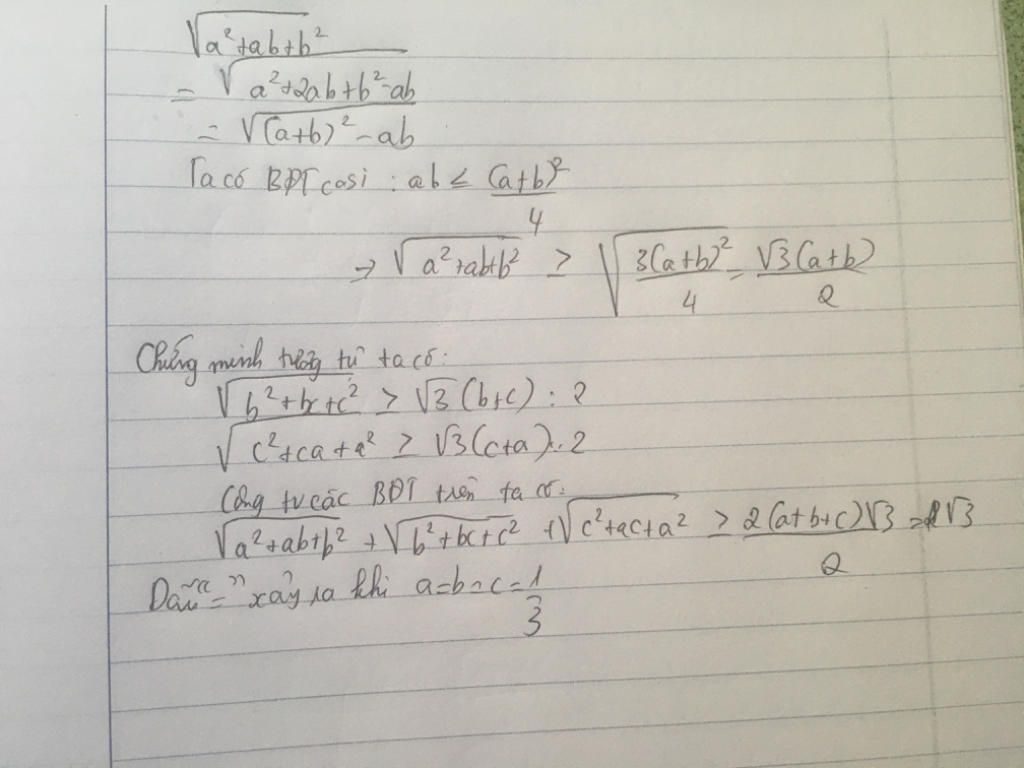 √(a²+ab+b²)
= √(a²+2ab+b²-ab)
= √((a+b)²-ab)
Ta có BĐT cosi : ab ≤ (a+b)²/4
→ √(a²+ab+b²) ≥ √(3(a+b)²/4) = √3(a+b)/2
Chứng minh tương tự ta có:
√(b²+bc+c²) ≥ √3(b+c) : 2
√(c²+ca+a²) ≥ √3(c+a) : 2
Cộng từ các BĐT trên ta có:
√(a²+ab+b²) + √(b²+bc+c²) + √(c²+ac+a²) ≥ 2(a+b+c)√3/2 = √3
Dấu "=" xảy ra khi a=b=c=1/3